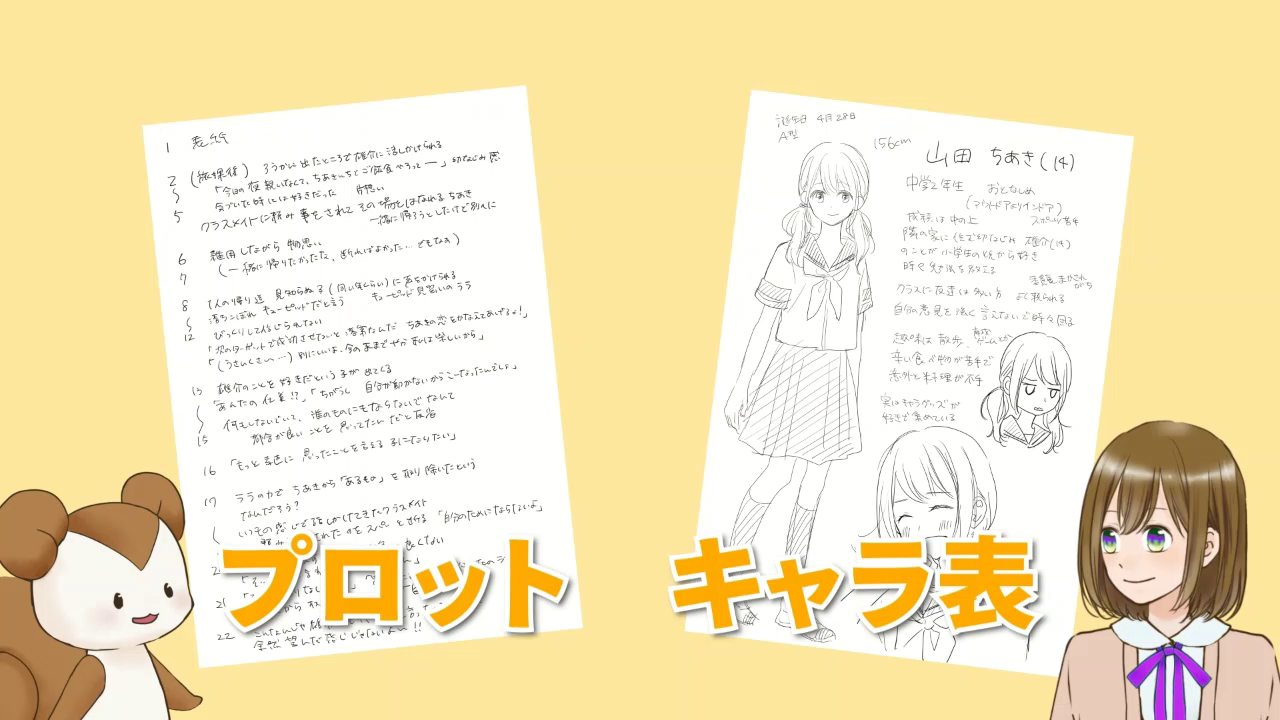 1 表紙
2 (放課後) ろうかに出たところで雄介に話しかけられる
「今日の夜親いなくて、ちあきんちでご飯食べろって―」幼なじみ 悪
5 気づいた時には好きだった 片想い
クラスメイトに頼み事をされてその場をはなれるちあき
一緒に帰ろうとしたけど別々に
6 雑用しながら物思い
7 (一緒に帰りたかったな、断ればよかった…でもなぁ)
8 1人の帰り道 見知らぬ子(同い年くらい)に声をかけられる
落ちこぼれキューピッドだと言う キューピッド見習いのララ
12 びっくりして信じられない
「次のターゲットで成功させないと落第なんだ ちあきの恋をかなえてあげるよ!」
「(うさんくさい…)別にいいよ、今のままでやか私は楽しいから」
13 雄介のことを好きだという子が出てくる
「あんたの仕業!?」「ちがうし 自分が動かないからこーなったんでしょ」
何もしないでいて、誰のものにもならないでなんて
15 都合が良いことを思ってたんだと反省
16 「もっと素直に思ったことを言える子になりたい」
17 ララの力でちあきから「あるもの」を取り除いたという
なんだろう?
いつもの感じで話しかけてきたクラスメイト
「自分のためにならないよ」
22
全然望んだ感じじゃない!!
誕生日 4月28日
A型
156cm
山田 ちあき(14)
中学2年生 おとなしめ
(アウトドアよりインドア)
成績は中の上 スポーツ苦手
隣の家に住む幼なじみ 雄介(14)
のことが小学生の頃から好き
時々勉強を教える
クラスに友達は多い方 よく頼られる
委員長まかされがち
自分の意見を強く言えないで時々困る
趣味は散歩、
辛い食べ物が苦手で
意外と料理が下手
実はキャラグッズが
好きで集めている
プロット
キャラ表